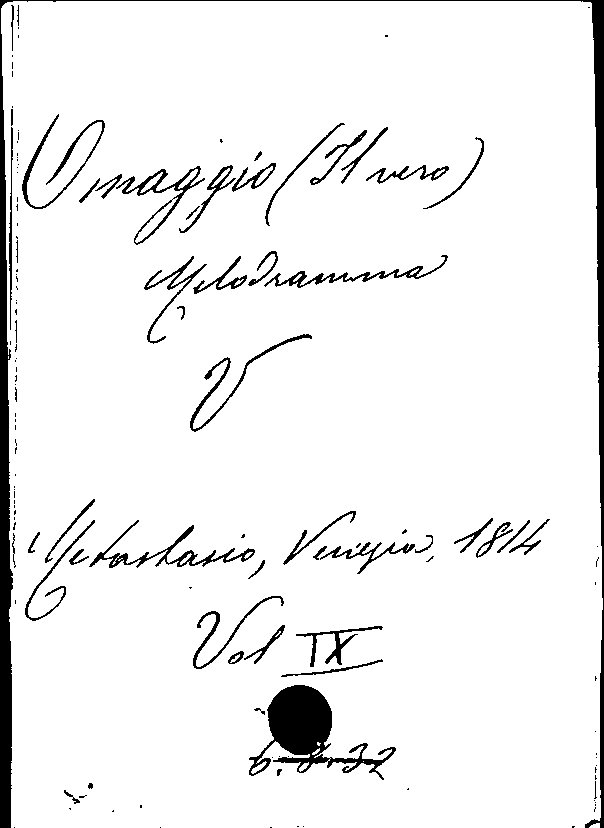 Omaggio (Il vero)
Melodramma
V
Metastasio, Venezia, 1814
Vol IX
6.8.32